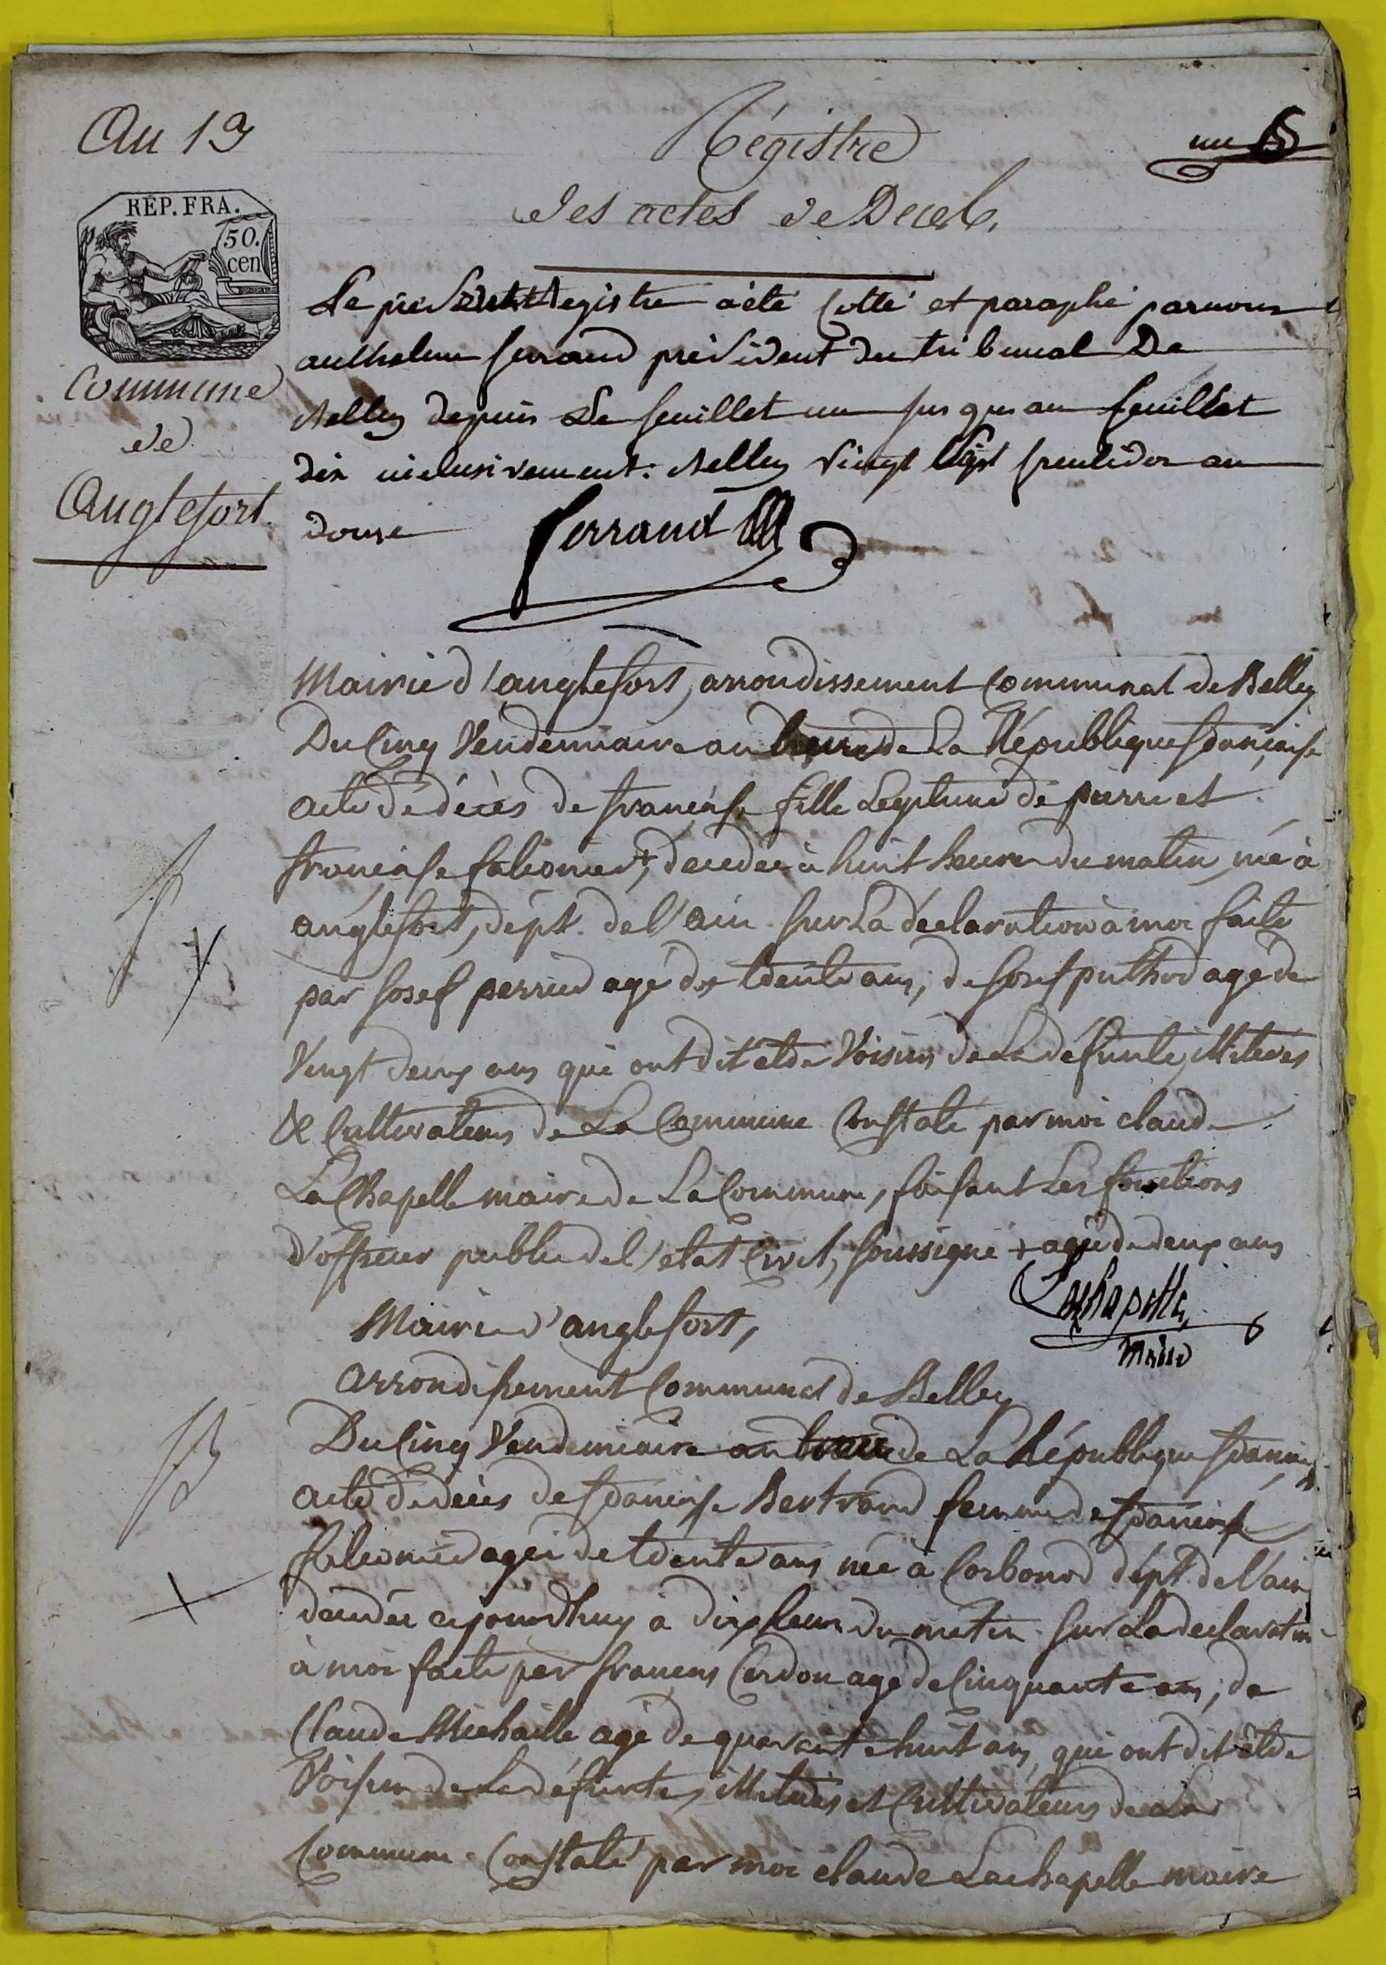 An 13
Régistre
un
des actes de Décès.
RÉP. FRA.
50.
cen
Commune
de
Anglefort.
Le présent Registre a été Cotté et paraphé par nous
anthelme ferrand président du tribunal De
Belley depuis Le feuillet un jusques au feuillet
dix inclusivement. Belley Vingt Sept fructidor an
douze
ferrand
Mairie d'anglefort, arrondissement Communal de Belley
Du Cinq Vendemiaire an treize de La République française
acte de décès de françoise fille Legitime de pierre et
françoise falconier +, decedée à huit heures du matin, née à
anglefort, dépt. de l'ain. sur La déclaration à moi faite
par Josef perrier agé de trente ans, de Josef puthod agé de
Vingt deux ans qui ont dit être Voisins de La défunte, illiterés
& Cultivateurs de La Commune Constaté par moi claude
LaChapelle maire de La Commune, faisant Les fonctions
d'officier public de l'état Civil, soussigné + agée de deux ans
Lachapelle,
maire
Mairie d'anglefort,
arrondissement Communal de Belley
Du Cinq Vendemiaire an treize de La République française
acte de décès de françoise Bertrand femme de françois
falconier agée de trente ans née à Corbonod dépt. de l'ain
décédée cejourdhuy à dix heures du matin sur La declaration
à moi faite par francois Cerdon agé de Cinquante ans, de
Claude Michaille agé de quarante huit ans, qui ont dit être
Voisins de La défunte, illiterés et Cultivateurs de La
Commune. Constaté par moi claude Lachapelle maire